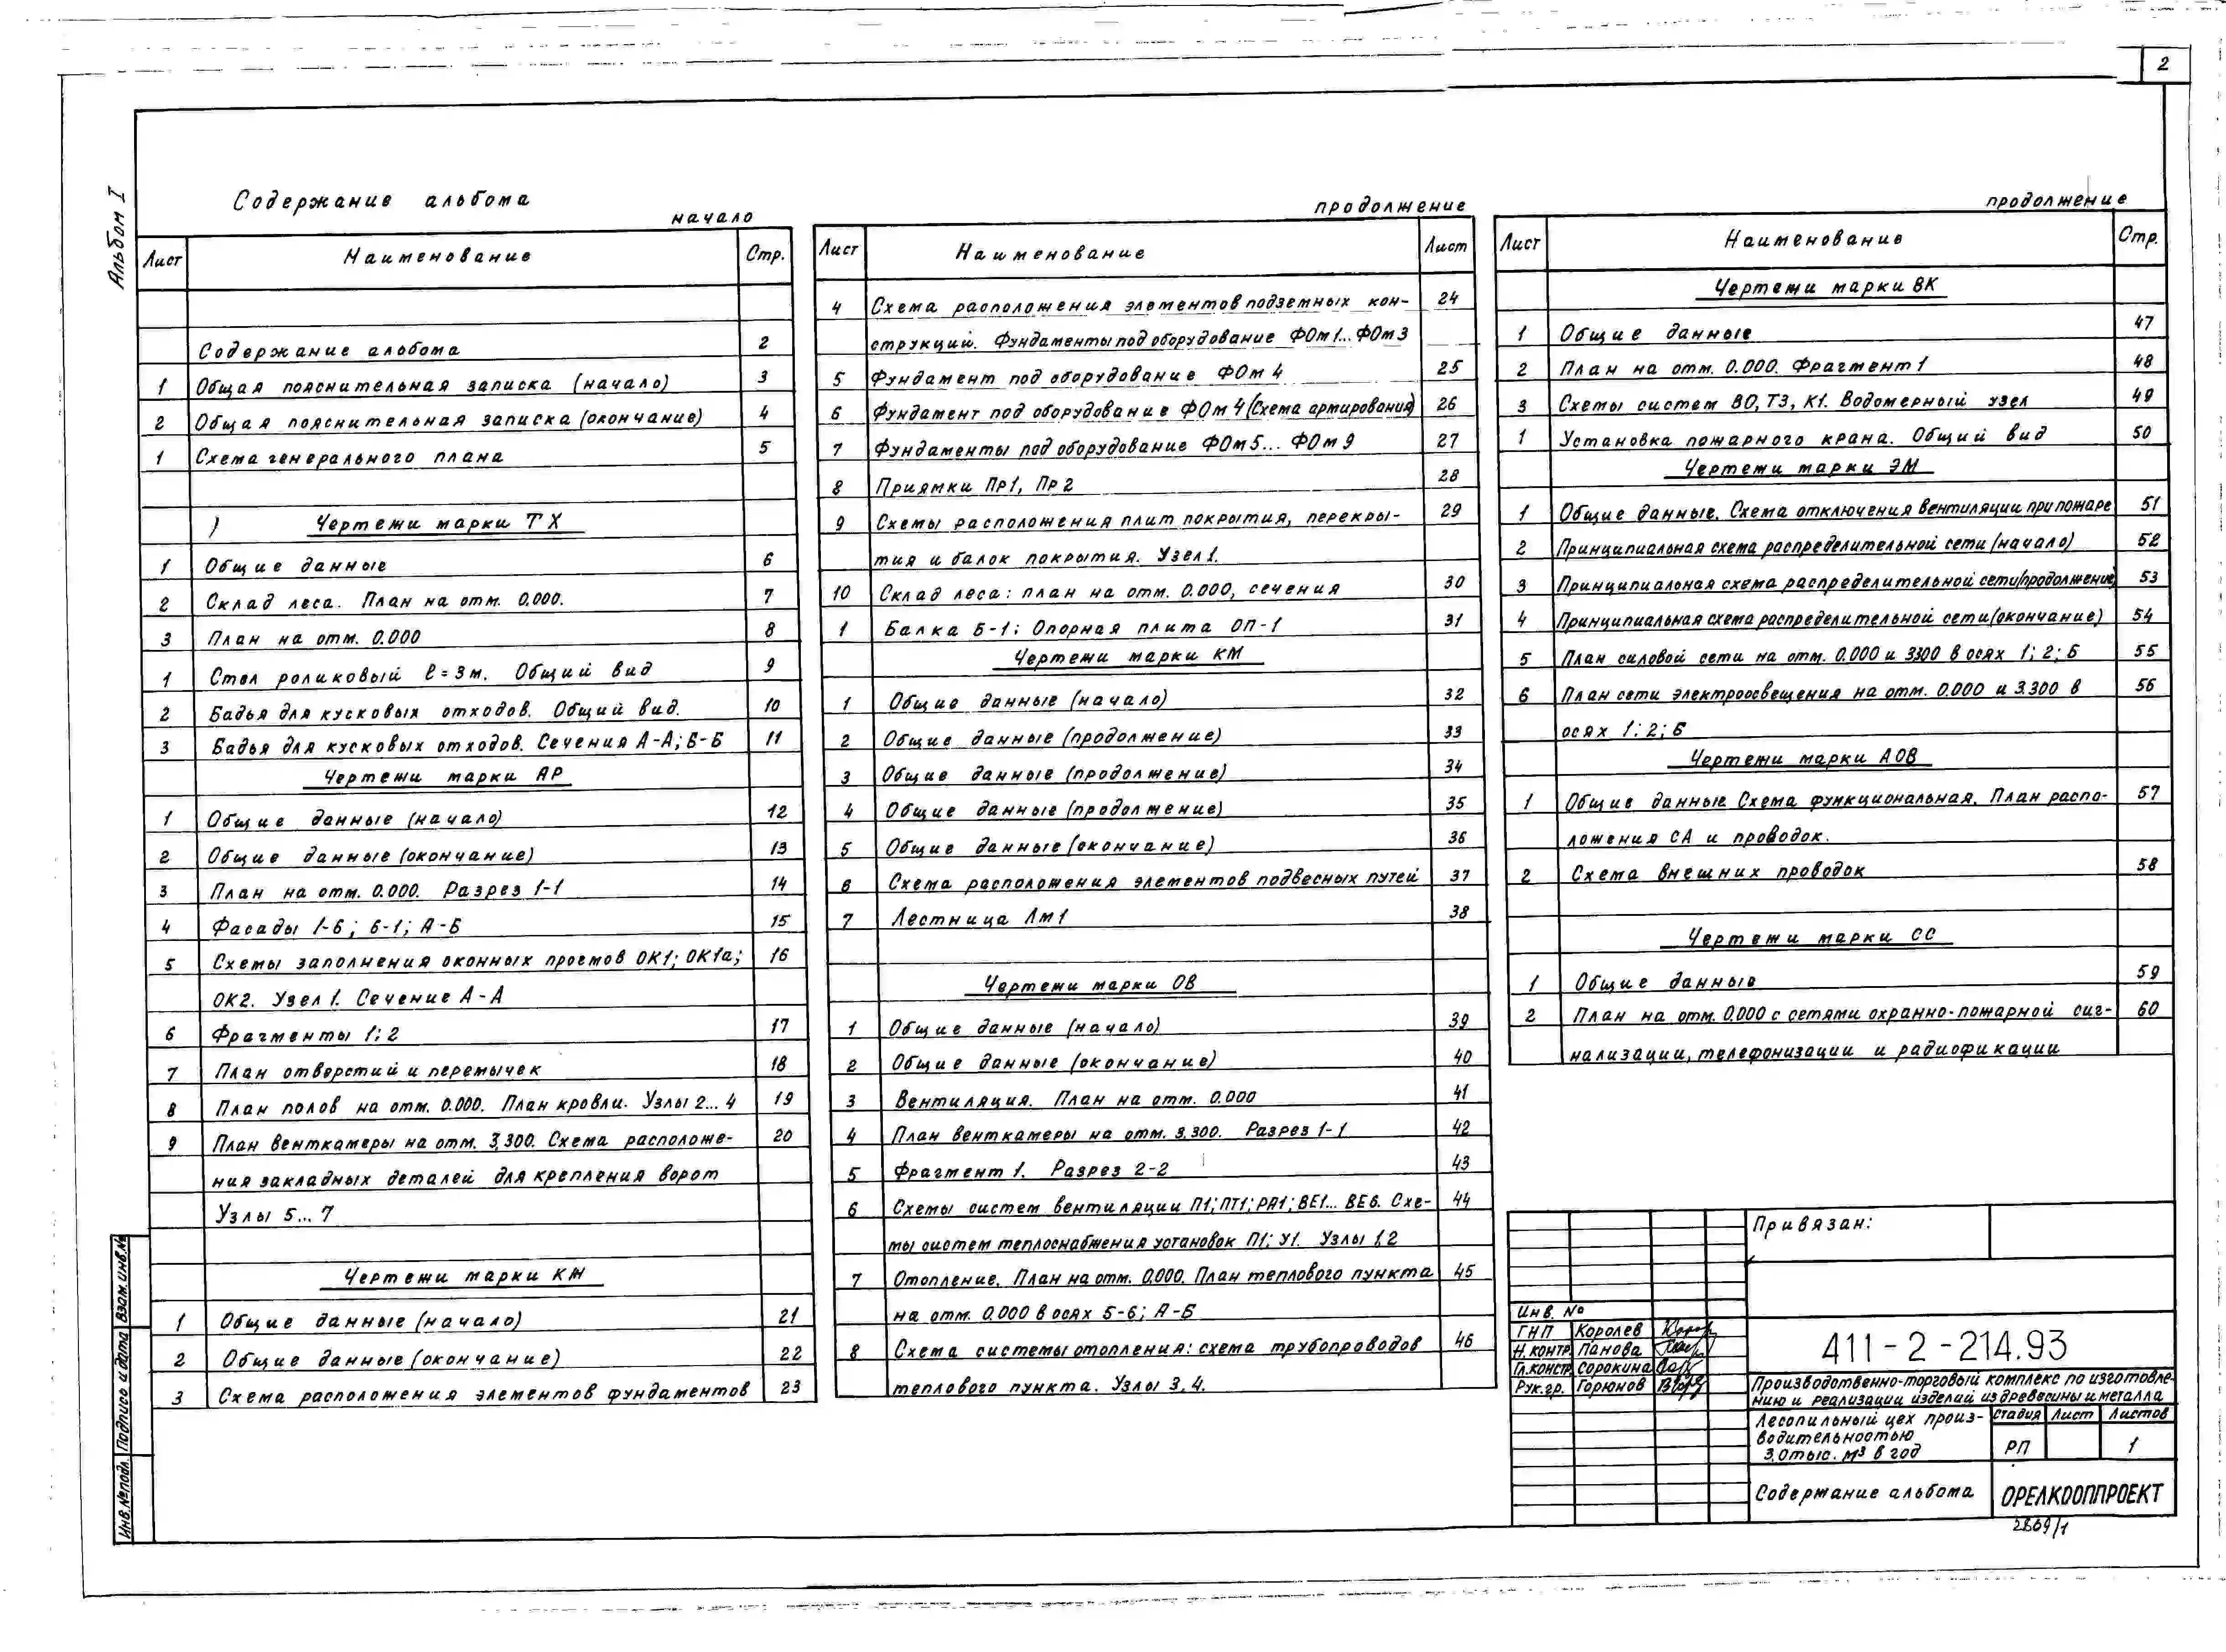 2
Альбом I
Содержание альбома
начало
Лист Наименование Стр.
Содержание альбома 2
1 Общая пояснительная записка (начало) 3
2 Общая пояснительная записка (окончание) 4
1 Схема генерального плана 5
Чертежи марки ТХ
1 Общие данные 6
2 Склад леса. План на отм. 0.000. 7
3 План на отм. 0.000 8
1 Стол роликовый ℓ=3м. Общий вид 9
2 Бадья для кусковых отходов. Общий вид. 10
3 Бадья для кусковых отходов. Сечения А-А; Б-Б 11
Чертежи марки АР
1 Общие данные (начало) 12
2 Общие данные (окончание) 13
3 План на отм. 0.000. Разрез 1-1 14
4 Фасады 1-6; 6-1; А-Б 15
5 Схемы заполнения оконных проемов ОК1; ОК1а; 16
ОК2. Узел 1. Сечение А-А
6 Фрагменты 1; 2 17
7 План отверстий и перемычек 18
8 План полов на отм. 0.000. План кровли. Узлы 2...4 19
9 План венткамеры на отм. 3,300. Схема расположе- 20
ния закладных деталей для крепления ворот
Узлы 5...7
Чертежи марки КЖ
1 Общие данные (начало) 21
2 Общие данные (окончание) 22
3 Схема расположения элементов фундаментов 23
продолжение
Лист Наименование Лист
4 Схема расположения элементов подземных кон- 24
струкций. Фундаменты под оборудование ФОм1...ФОм3
5 Фундамент под оборудование ФОм 4 25
6 Фундамент под оборудование ФОм 4 (Схема армирования) 26
7 Фундаменты под оборудование ФОм5...ФОм9 27
8 Приямки Пр1, Пр2 28
9 Схемы расположения плит покрытия, перекры- 29
тия и балок покрытия. Узел 1.
10 Склад леса: план на отм. 0.000, сечения 30
1 Балка Б-1; Опорная плита ОП-1 31
Чертежи марки КМ
1 Общие данные (начало) 32
2 Общие данные (продолжение) 33
3 Общие данные (продолжение) 34
4 Общие данные (продолжение) 35
5 Общие данные (окончание) 36
6 Схема расположения элементов подвесных путей 37
7 Лестница Лм1 38
Чертежи марки ОВ
1 Общие данные (начало) 39
2 Общие данные (окончание) 40
3 Вентиляция. План на отм. 0.000 41
4 План венткамеры на отм. 3.300. Разрез 1-1 42
5 Фрагмент 1. Разрез 2-2 43
6 Схемы систем вентиляции П1; ПТ1; РА1; ВЕ1...ВЕ6. Схе- 44
мы систем теплоснабжения установок П1; У1. Узлы 1,2
7 Отопление. План на отм. 0.000. План теплового пункта 45
на отм. 0.000 в осях 5-6; А-Б
8 Схема системы отопления: схема трубопроводов 46
теплового пункта. Узлы 3,4.
продолжение
Лист Наименование Стр.
Чертежи марки ВК
1 Общие данные 47
2 План на отм. 0.000. Фрагмент 1 48
3 Схемы систем ВО, Т3, К1. Водомерный узел 49
1 Установка пожарного крана. Общий вид 50
Чертежи марки ЭМ
1 Общие данные. Схема отключения вентиляции при пожаре 51
2 Принципиальная схема распределительной сети (начало) 52
3 Принципиальная схема распределительной сети (продолжение) 53
4 Принципиальная схема распределительной сети (окончание) 54
5 План силовой сети на отм. 0.000 и 3.300 в осях 1; 2; Б 55
6 План сети электроосвещения на отм. 0.000 и 3.300 в 56
осях 1; 2; Б
Чертежи марки АОВ
1 Общие данные. Схема функциональная. План распо- 57
ложения СА и проводок.
2 Схема внешних проводок 58
Чертежи марки СС
1 Общие данные 59
2 План на отм. 0.000 с сетями охранно-пожарной сиг- 60
нализации, телефонизации и радиофикации
Привязан:
Инв. №
ГНП Королев
Н.контр. Панова
Гл.констр. Сорокина
Рук.гр. Горюнов
411-2-214.93
Производственно-торговый комплекс по изготовле-
нию и реализации изделий из древесины и металла
Лесопильный цех произ-
водительностью
3,0 тыс. м³ в год
Стадия Лист Листов
РП 1
Содержание альбома
ОРЕЛКООППРОЕКТ
2869/1
Инв.№ подл. Подпись и дата Взам.инв.№